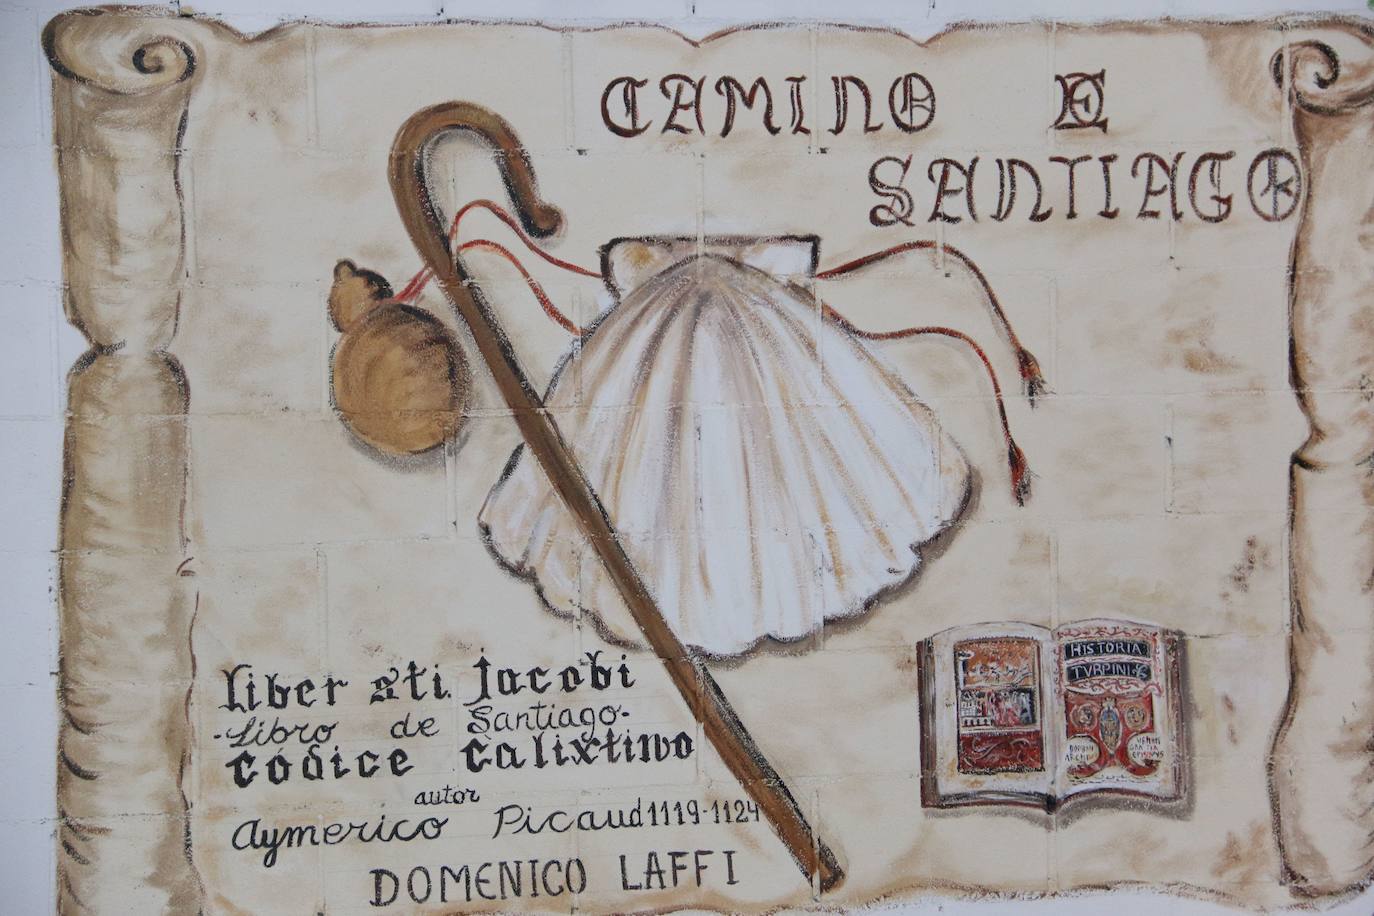 CAMINO DE
SANTIAGO
liber sti jacobi
-Libro de Santiago-
códice Calixtino
autor
Aymerico Picaud 1119-1124
DOMENICO LAFFI
HISTORIA
TVRPINI